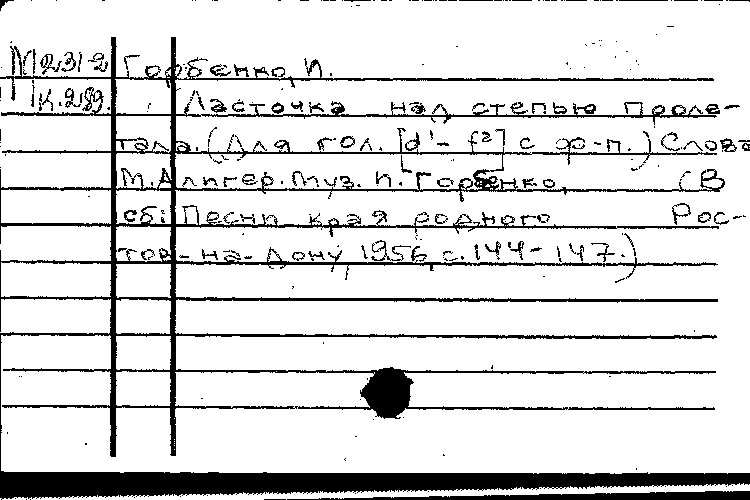 М 231-2 Горбенко, И.
К.299. Ласточка над степью проле-
тала. (Для гол. [d¹- f²] с ф-п.) Слова
М. Алигер. Муз. И. Горбенко, (В
сб: Песни края родного Рос-
тов-на-Дону, 1956, с. 144-147.)